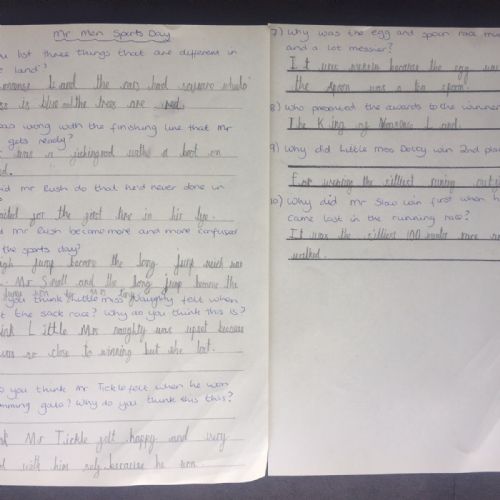 Mr Men Sports Day
u list three things that are different in
e land?
and the cars had square wheels
ss is blue and the trees are red.
wrong with the finishing line that Mr
gets ready?
was a with a boot on
id Mr Rush do that he'd never done in
for the first time in his life.
Mr Rush become more and more confused
the sports day?
igh jump became the long jump wich was
Mr Small and the long jump became the
you think Little miss Naughty felt when
t the sack race? Why do you think this is?
ink Little Mrs naughty was upset because
was so close to winning but she lost.
o you think Mr Tickle felt when he won
mming gala? Why do you think this this?
Mr Tickle felt happy and very
with him self because he won.
7) Why was the egg and spoon race
and a lot messier?
It was because the egg was
the spoon was a tea spoon.
8) Who presented the awards to the winners
The King of Land.
9) Why did Little miss Dotty win 2nd place
For winning the silliest
10) Why did Mr Slow win first when he
came last in the running race?
It was the silliest 100 race
walked.